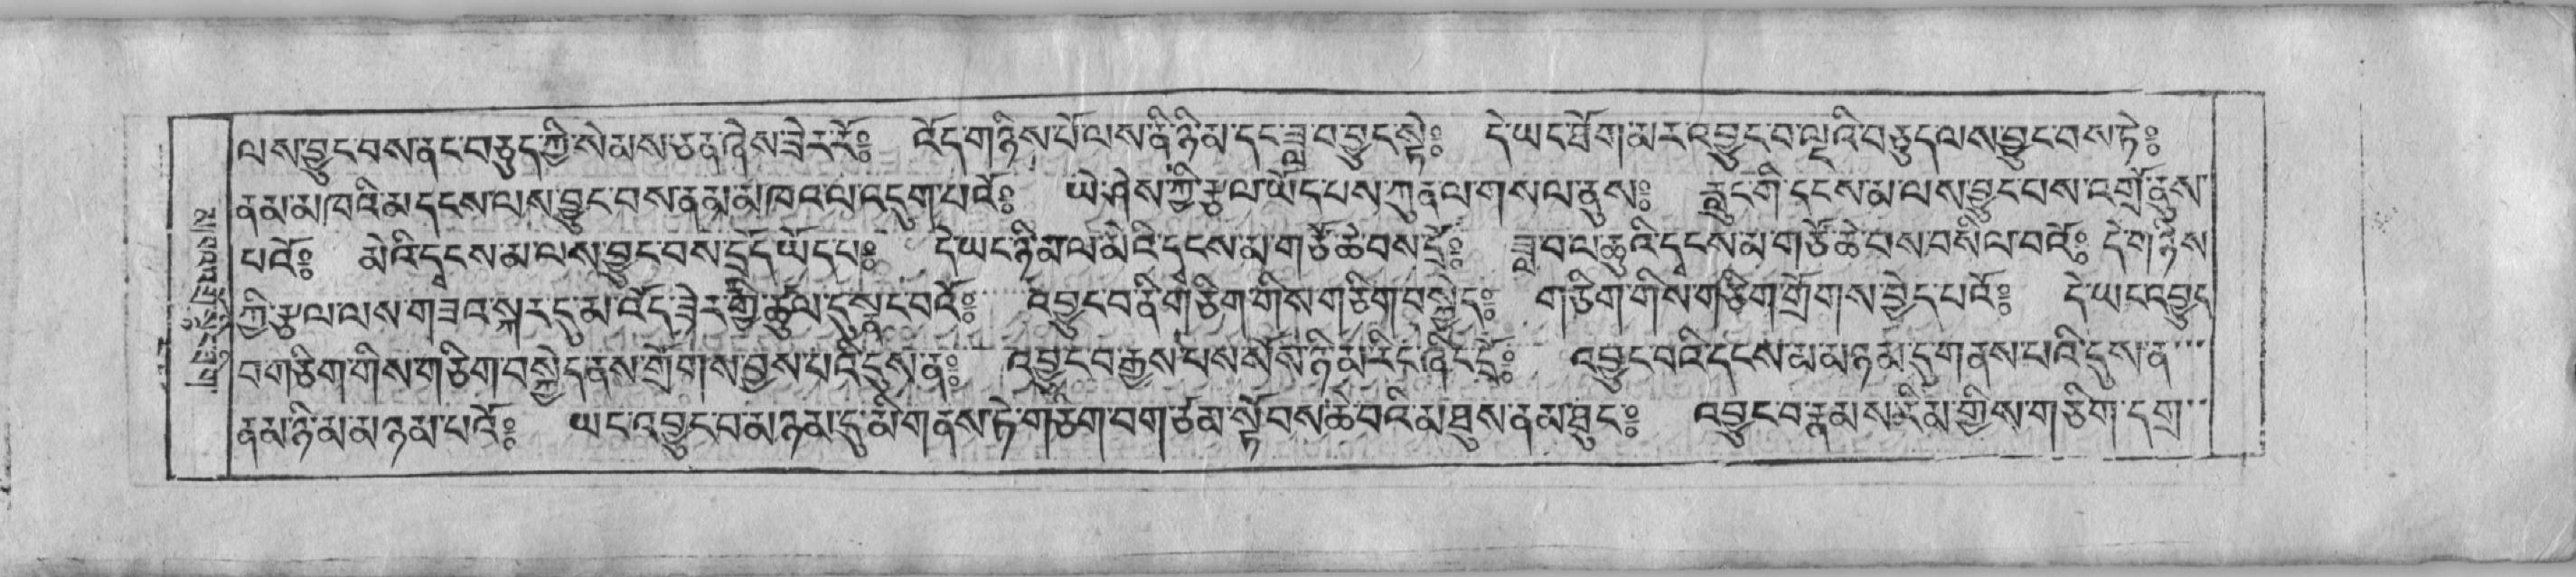 ལས་བྱུང་བས་ནང་བཅུད་ཀྱི་སེམས་ཅན་ཞེས་ཟེར་རོ༔ འོད་གཉིས་པོ་ལས་ནི་ཉི་མ་དང་ཟླ་བ་བྱུང་སྟེ༔ དེ་ཡང་ཐོག་མར་འབྱུང་བ་ལྔའི་བཅུད་ལས་བྱུང་བས་ཏེ༔
ནམ་མཁའི་མ་དྭངས་ལས་བྱུང་བས་ནམ་མཁའ་ལ་འདུག་པའོ༔ ཡེ་ཤེས་ཀྱི་རྩལ་ཡོད་པས་ཀུན་ལ་གསལ་ནུས༔ རླུང་གི་དྭངས་མ་ལས་བྱུང་བས་འགྲོ་ནུས་
པའོ༔ མེའི་དྭངས་མ་ལས་བྱུང་བས་དྲོད་ཡོད་པ༔ དེ་ཡང་ཉི་མ་ལ་མེའི་དྭངས་མ་གཙོ་ཆེ་བས་དྲོ༔ ཟླ་བ་ལ་ཆུའི་དྭངས་མ་གཙོ་ཆེ་བས་བསིལ་བའོ༔ དེ་གཉིས་
ཀྱི་རྩལ་ལས་གཟའ་སྐར་དུ་མ་འོད་ཟེར་གྱི་ཚུལ་དུ་སྣང་བའོ༔ འབྱུང་བ་ནི་གཅིག་གིས་གཅིག་བསྐྱེད༔ གཅིག་གིས་གཅིག་གྲོགས་བྱེད་པའོ༔ དེ་ཡང་འབྱུང
བ་གཅིག་གིས་གཅིག་བསྐྱེད་ནས་གྲོགས་བྱས་པའི་དུས་ན༔ འབྱུང་བ་རྒྱས་པས་སོས་ཉི་མ་རིང་ཞིང་དྲོ༔ འབྱུང་བའི་དྭངས་མ་མཉམ་དུ་གནས་པའི་དུས་ན་
ནམ་ཉི་མ་མཉམ་པའོ༔ ཡང་འབྱུང་བ་མཉམ་དུ་མི་གནས་ཏེ་གཅིག་བག་ཙམ་སྟོབས་ཆེ་བའི་མཐུས་ནམ་ཐུང༔ འབྱུང་བ་རྣམས་རིམ་གྱིས་གཅིག་དགྲ་